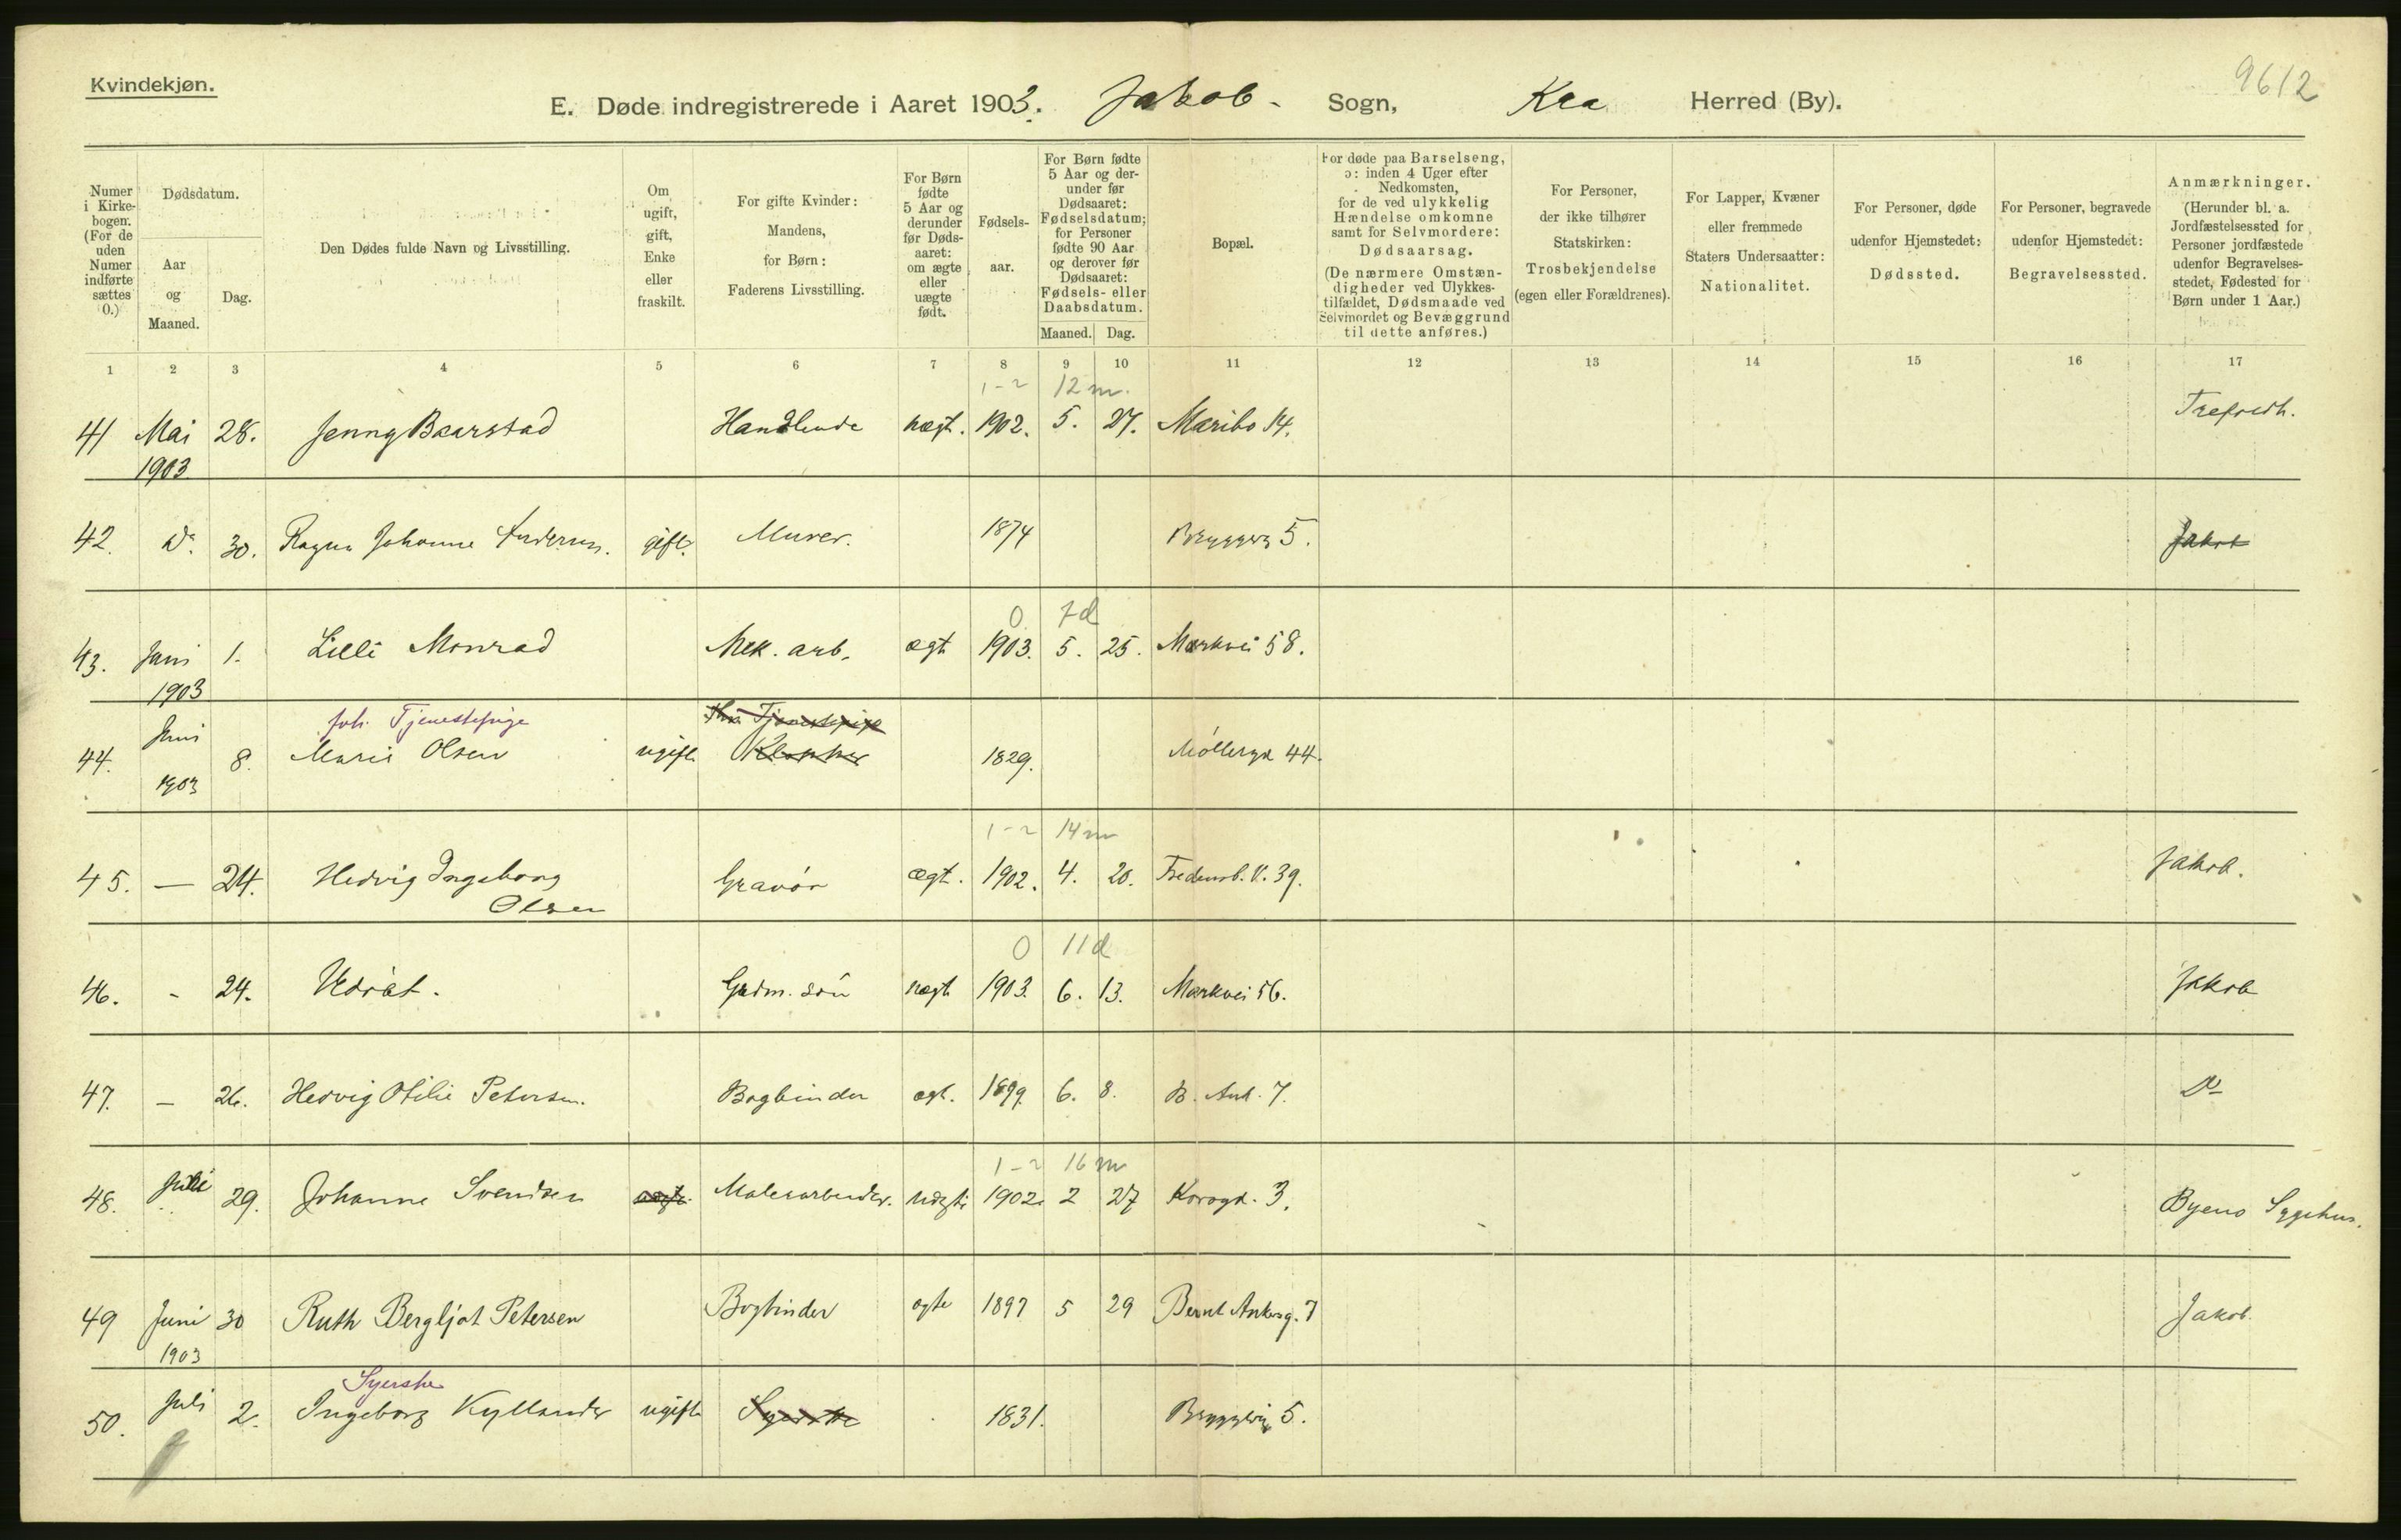 Kvindekjøn.
9612
E. Døde indregistrerede i Aaret 1903. Jakob - Sogn, Kra Herred (By).
Numer i Kirkebogen. (For de uden Numer indførte sættes 0.)
Dødsdatum.
Aar og Maaned.
Dag.
Den Dødes fulde Navn og Livsstilling.
Om ugift, gift, Enke eller fraskilt.
For gifte Kvinder: Mandens, for Børn: Faderens Livsstilling.
For Børn fødte 5 Aar og derunder før Dødsaaret: om ægte eller uægte født.
Fødselsaar.
For Børn fødte 5 Aar og derunder før Dødsaaret: Fødselsdatum; for Personer fødte 90 Aar og derover før Dødsaaret: Fødsels- eller Daabsdatum.
Maaned. Dag.
Bopæl.
For døde paa Barselseng, ɔ: inden 4 Uger efter Nedkomsten, for de ved ulykkelig Hændelse omkomne samt for Selvmordere: Dødsaarsag. (De nærmere Omstændigheder ved Ulykkestilfældet, Dødsmaade ved Selvmordet og Bevæggrund til dette anføres.)
For Personer, der ikke tilhører Statskirken: Trosbekjendelse (egen eller Forældrenes).
For Lapper, Kvæner eller fremmede Staters Undersaatter: Nationalitet.
For Personer, døde udenfor Hjemstedet: Dødssted.
For Personer, begravede udenfor Hjemstedet: Begravelsessted.
Anmærkninger. (Herunder bl. a. Jordfæstelsessted for Personer jordfæstede udenfor Begravelsesstedet, Fødested for Børn under 1 Aar.)
1 2 3 4 5 6 7 8 9 10 11 12 13 14 15 16 17
1-2 12 m.
41 Mai 28. Jenny Baarstad Handlende uægt. 1902. 5. 27. Maribo 14. Trefoldh.
1903
42. Do 30. Ragna Johanne Andersen. gift. Murer. 1874 Bryggerg 5. Jakob
0 7d
43. Juni 1. Lilli Monrad Mek. arb. ægt 1903. 5. 25. Markvei 58.
1903
foh. Tjenestepige Tjenestepige
44. Juni 8. Marie Olsen ugift 1829. Møllergd 44.
1903
1-2 14 m
45. — 24. Hedvig Ingeborg Gravør ægt. 1902. 4. 20. Fredensb. V. 39. Jakob.
Olsen
0 11d
46. - 24. Udøbt. Gadm. søn uægt 1903. 6. 13. Markvei 56. Jakob
47. — 26. Hedvig Otilie Petersen. Bogbinder ægt. 1899. 6. 8. B. Ank. 7. Do
1-2 16 m
48. Juli 29. Johanne Svendsen Malerarbeider. uægte 1902. 2 27 Korsgd. 3. Byens Sygehus.
49 Juni 30 Ruth Bergljot Petersen Bogbinder ægte 1897 5 29 Bernt Ankersg. 7 Jakob.
1903
Syerske
50. Juli 2. Ingeborg Kyllander ugift Syerske 1831. Bryggerig 5.